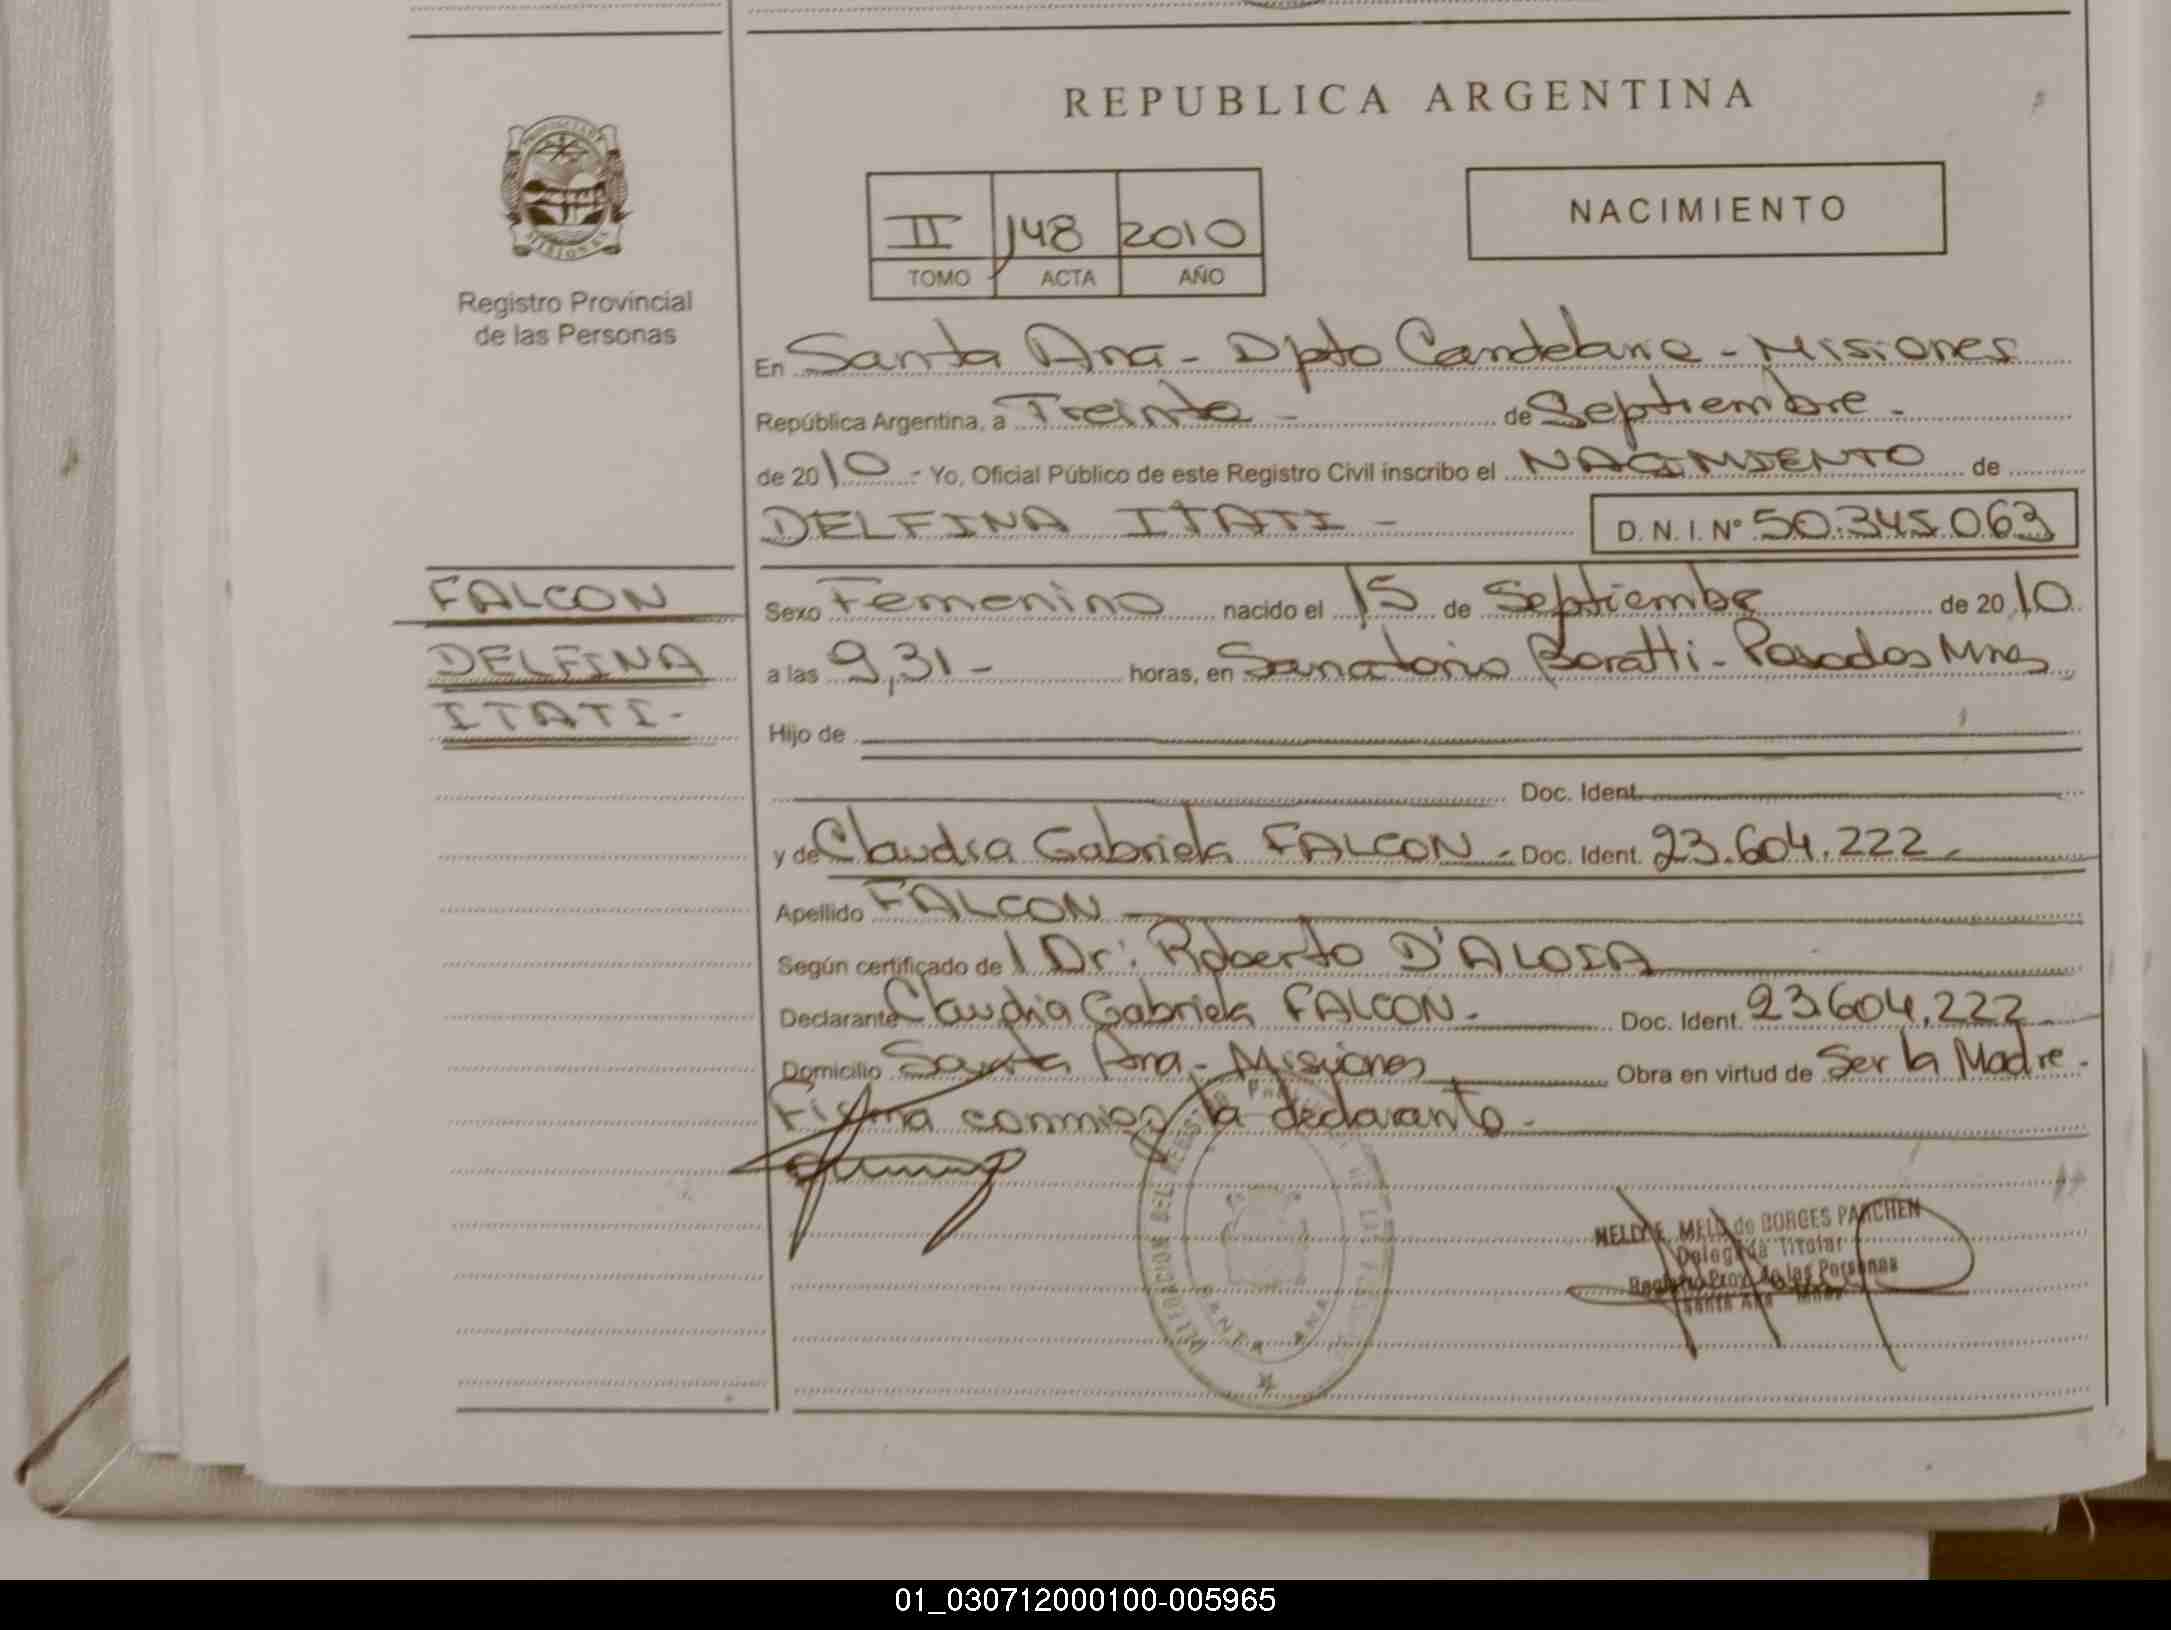 REPUBLICA ARGENTINA
PROVINCIA DE
MISIONES
Registro Provincial
de las Personas
NACIMIENTO
II 148 2010
TOMO ACTA AÑO
En Santa Ana - Dpto Candelaria - Misiones
República Argentina, a Treinta - de Septiembre -
de 2010.- Yo, Oficial Público de este Registro Civil inscribo el NACIMIENTO de
DELFINA ITATI - D. N. I. Nº 50.345.063
FALCON
DELFINA
ITATI -
Sexo Femenino nacido el 15 de Septiembre de 2010
a las 9,31 - horas, en Sanatorio Boratti - Posadas Mnes
Hijo de
Doc. Ident.
y de Claudia Gabriela FALCON - Doc. Ident. 23.604.222 -
Apellido FALCON
Según certificado de Dr: Roberto D'ALOIA
Declarante Claudia Gabriela FALCON - Doc. Ident. 23.604.222
Domicilio Santa Ana - Misiones Obra en virtud de Ser la Madre -
Firma conmigo la declarante -
DELEGACION DEL REGISTRO
SANTA ANA
NELLY E. MELO de BORGES PARCHEN
Delegada Titular
Registro Prov. de las Personas
Santa Ana Mnes
01_030712000100-005965